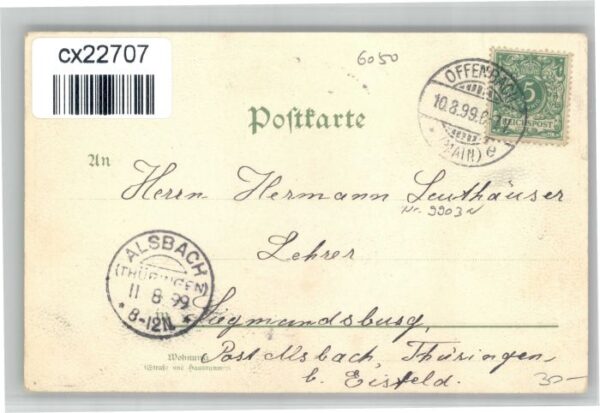 cx22707
6050
OFFENBACH
10.8.99.
(MAIN) e
5
REICHSPOST
Postkarte
An
Herrn Hermann Leuthäuser
Nr. 9903
Lehrer
ALSBACH
(THÜRINGEN)
11 8 99
* 8-12N. *
Siegmundsburg,
Wohnung
(Straße und Hausnummer)
Post Alsbach, Thüringen
b. Eisfeld.
30-